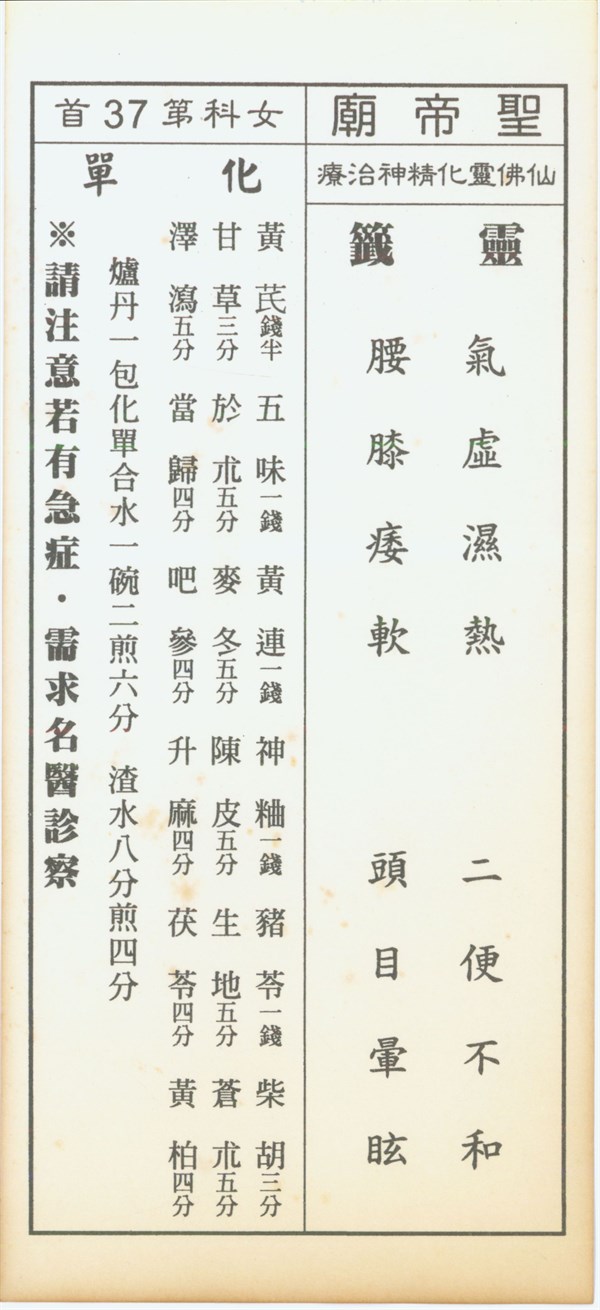 聖帝廟
仙佛靈化精神治療
靈籤
氣虛濕熱 二便不和
腰膝痿軟 頭目暈眩
女科第37首
化單
黃芪錢半 五味一錢 黃連一錢 神粬一錢 豬苓一錢 柴胡三分
甘草三分 於朮五分 麥冬五分 陳皮五分 生地五分 蒼朮五分
澤瀉五分 當歸四分 吧參四分 升麻四分 茯苓四分 黃柏四分
爐丹一包化單合水一碗二煎六分 渣水八分煎四分
※請注意若有急症・需求名醫診察